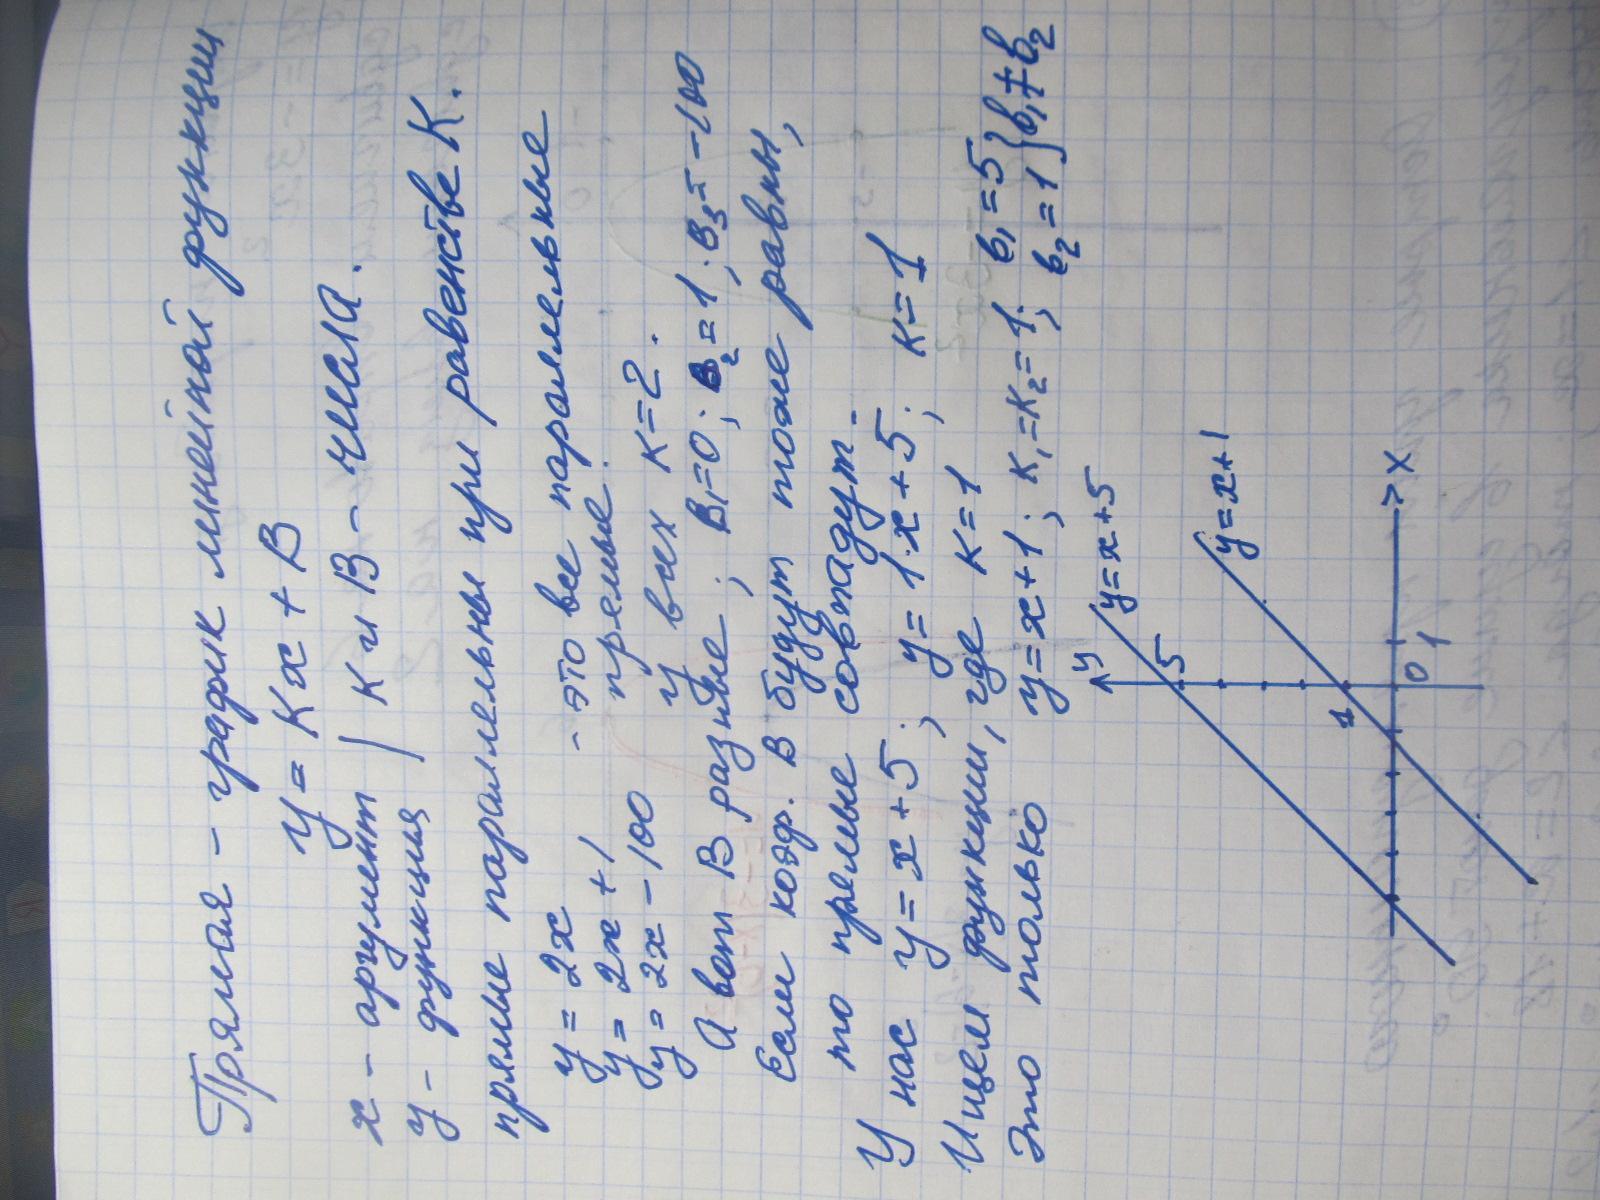 Прямая - график линейной функции
y = Kx + B
x - аргумент | K и B - числа.
y - функция
прямые параллельны при равенстве K.
y = 2x - это все параллельные
y = 2x + 1 прямые.
y = 2x - 100 у всех K=2.
А вот B разные; B₁=0; B₂=1; B₃=-100
Если коэф. B будут тоже равны,
то прямые совпадут.
У нас y = x + 5; y = 1·x + 5; K = 1
Ищем функции, где K = 1
Это только y = x + 1; K₁=K₂=1; b₁=5 } b₁≠b₂
b₂=1
y
y=x+5
5
y=x+1
1
0
1
X